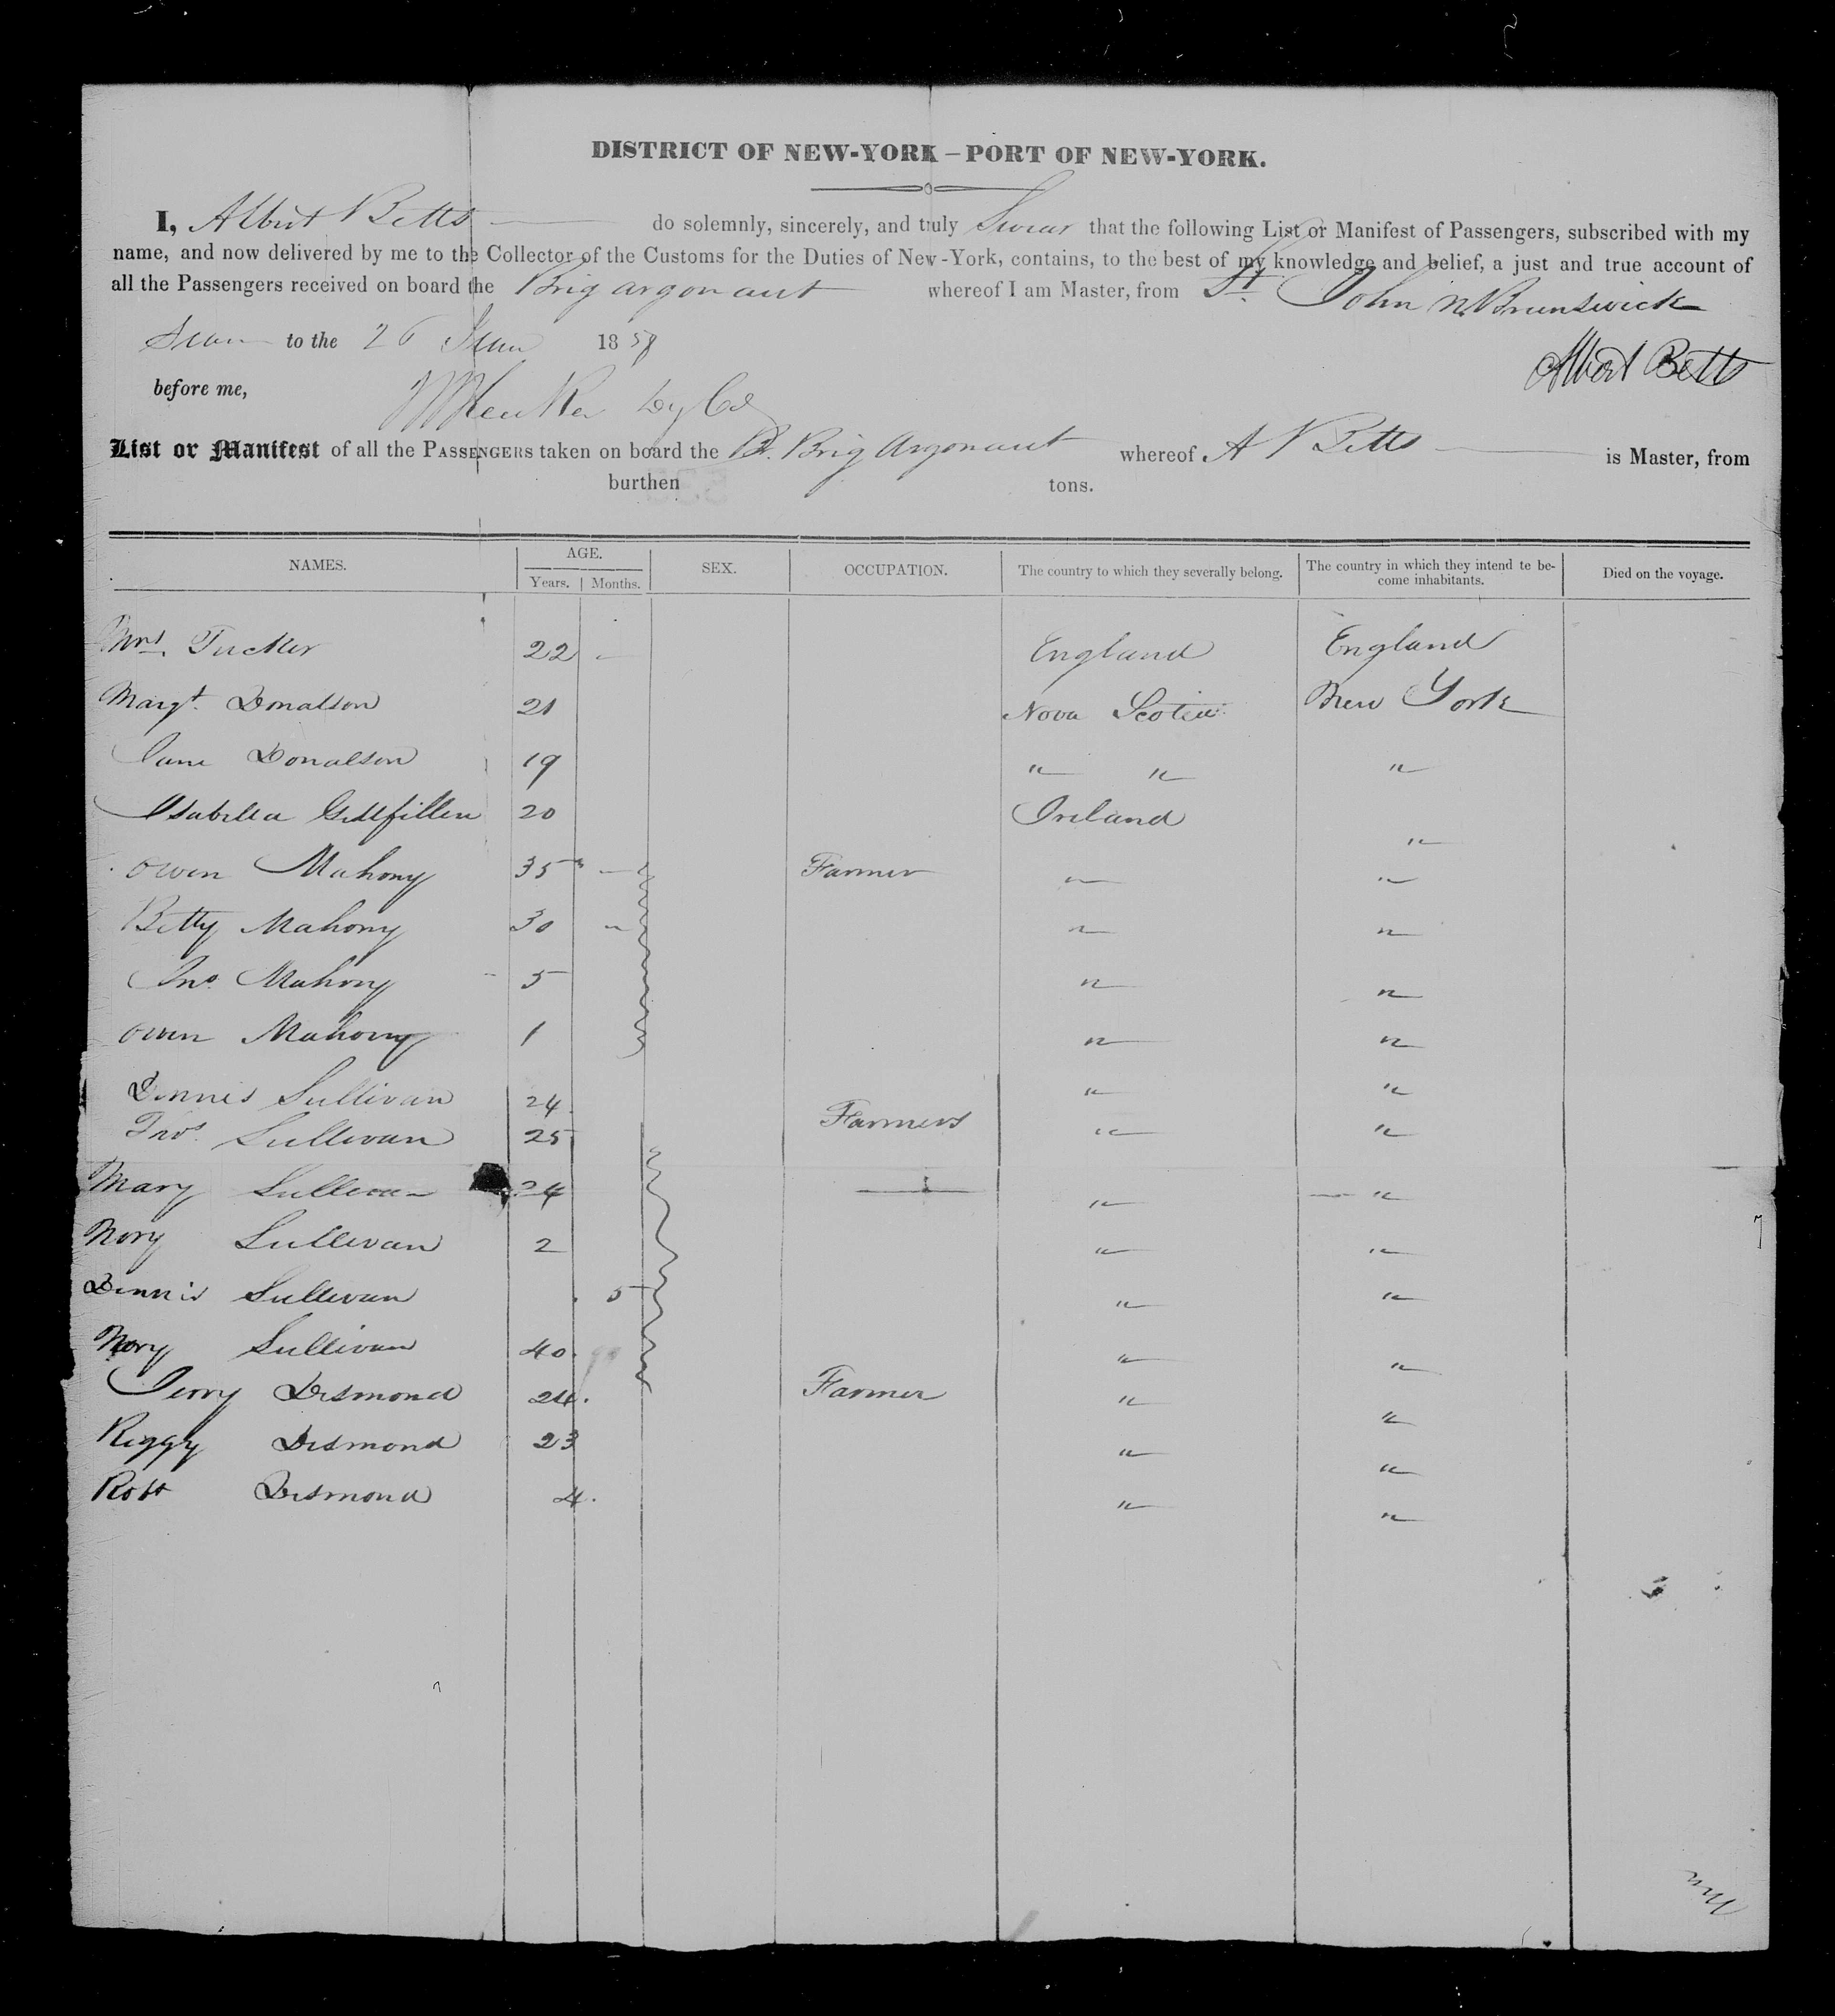 DISTRICT OF NEW-YORK – PORT OF NEW-YORK.
I, Albert Betts do solemnly, sincerely, and truly Swear that the following List or Manifest of Passengers, subscribed with my
name, and now delivered by me to the Collector of the Customs for the Duties of New-York, contains, to the best of my knowledge and belief, a just and true account of
all the Passengers received on board the Brig argonaut whereof I am Master, from St John N. Brunswick
to the 26 1858
Albert Betts
before me,
List or Manifest of all the PASSENGERS taken on board the Br. Brig Argonaut whereof A Betts is Master, from
burthen tons.
NAMES. AGE. SEX. OCCUPATION. The country to which they severally belong. The country in which they intend te be-come inhabitants. Died on the voyage.
Years. Months.
Mrs. Tucker 22 – England England
Margt. Donalson 21 Nova Scotia New York
Jane Donalson 19 " " "
Isabella Gillfillen 20 Ireland "
Owen Mahony 35 – Farmer " "
Betty Mahony 30 " " "
Jno. Mahony 5 " "
Owen Mahony 1 " "
Dennis Sullivan 24 " "
Thos. Sullivan 25 Farmers " "
Mary Sullivan 24 " "
Nory Sullivan 2 " "
Dennis Sullivan 5 " "
Nory Sullivan 40 " "
Jerry Desmond 24. Farmer " "
Peggy Desmond 23 " "
Robt Desmond 4. " "